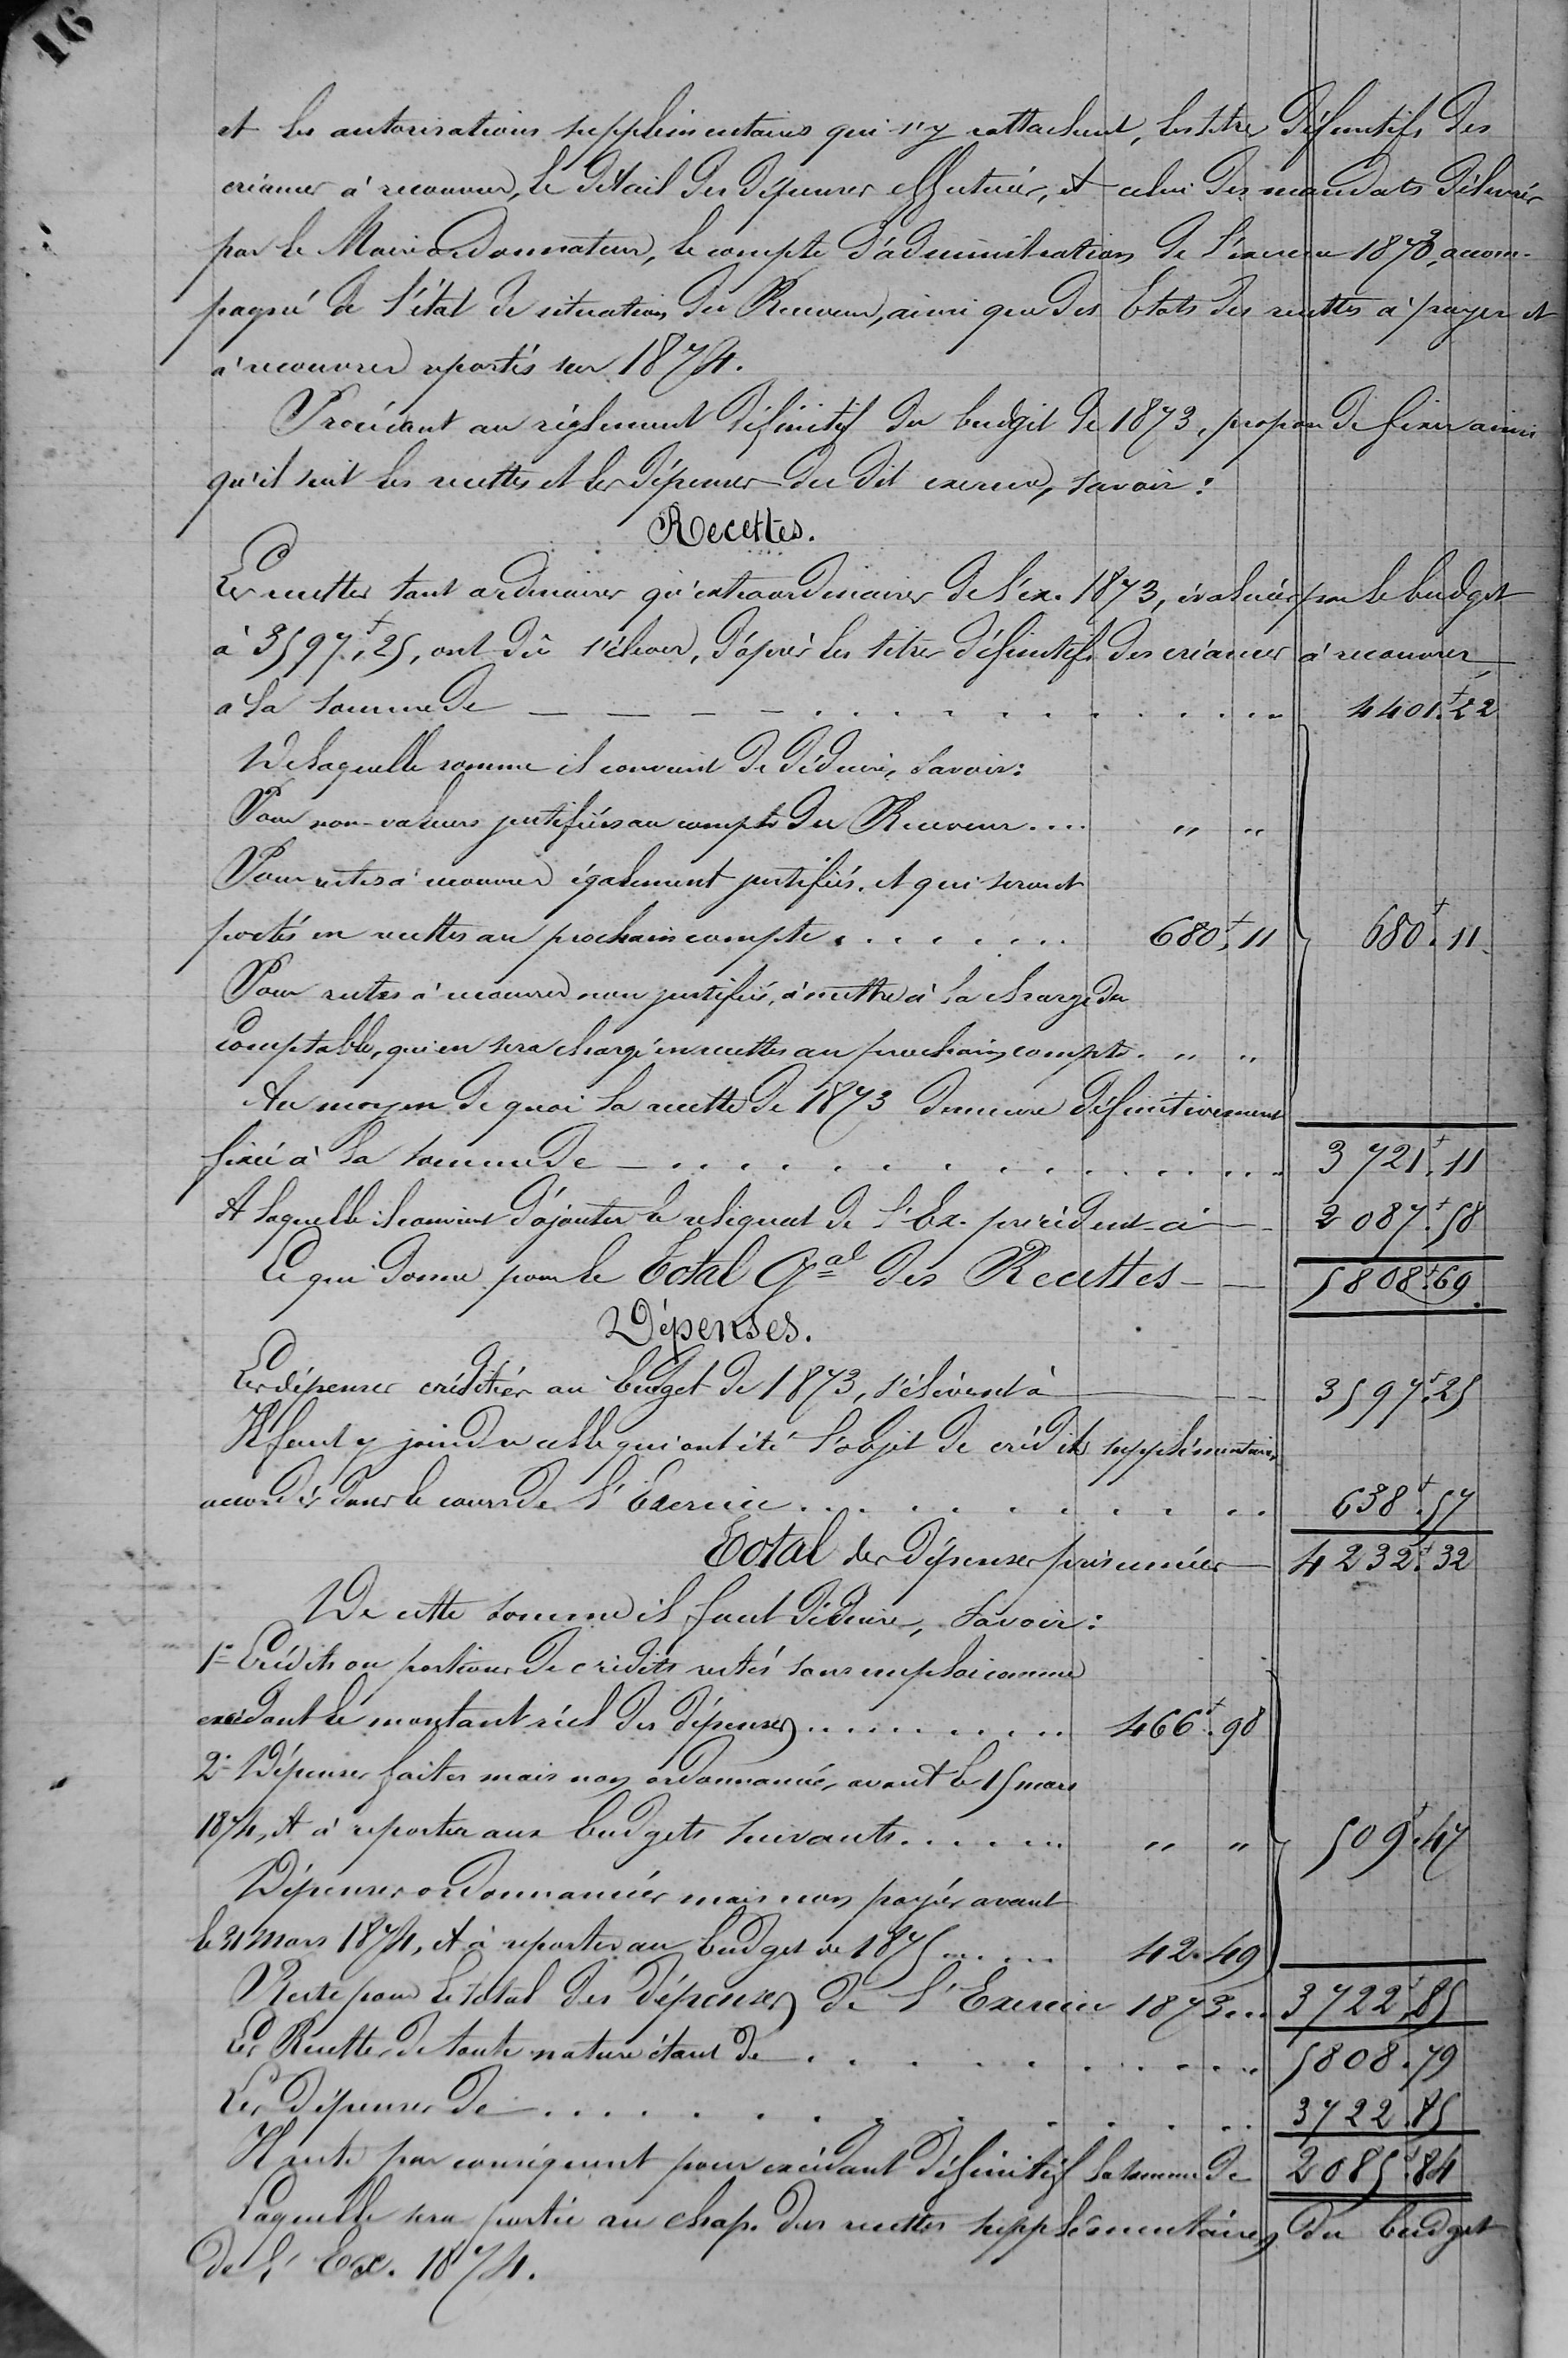 16
et les autorisations supplémentaires qui s'y rattachent, les titres définitifs des
créances à recouvrer, le détail des dépenses effectuées, et celui des mandats délivrés
par le Maire ordonnateur, le compte d'administration de l'exercice 1873, accom-
pagné de l'état de situation du Receveur, ainsi que des Etats des restes à payer et
à recouvrer reportés sur 1874.
Procédant au règlement définitif du budget de 1873, propose de fixer ainsi
qu'il suit les recettes et les dépenses du dit exercice, savoir :
Recettes.
Les recettes tant ordinaires qu'extraordinaires de l'ex. 1873, évaluées par le budget
à 3597f,25, ont dû s'élever, d'après les titres définitifs des créances à recouvrer,
à la somme de 4401f.22
De laquelle somme il convient de déduire, savoir :
Pour non-valeurs justifiées au compte du Receveur.... " "
Pour restes à recouvrer également justifiés, et qui seront
portés en recettes au prochain compte. . . . . . . 680f,11 680f.11
Pour restes à recouvrer non justifiés, à mettre à la charge du
Comptable, qui en sera chargé en recettes au prochain compte. " "
Au moyen de quoi la recette de 1873 demeure définitivement
fixée à la somme de 3721f.11
A laquelle il convient d'ajouter le reliquat de l'Ex. précédent à 2087f.58
Ce qui donne pour le Total Gal des Recettes 5808f.69.
Dépenses.
Les dépenses créditées au budget de 1873, s'élèvent à 3597f.25
Il faut y joindre celles qui ont été l'objet de crédits supplémentaires
accordés dans le cours de l'Exercice 638f.57
Total des dépenses présumées 4232f.32
De cette somme il faut déduire, savoir :
1º Crédits ou portions de crédits restés sans emploi comme
excédant le montant réel des dépenses 466f.98
2º Dépenses faites mais non ordonnancées, avant le 15 mars
1874, et à reporter aux budgets suivants " " 509f.47
Dépenses ordonnancées mais non payées avant
le 31 Mars 1874, et à reporter au budget de 1875 42.49
Reste pour le total des dépenses de l'Exercice 1873 3722f,85
Les Recettes de toute nature étant de 5808.79
Les dépenses de 3722.85
Il reste par conséquent pour excédant définitif la somme de 2085f.84
Laquelle sera portée au chap. des recettes supplémentaires du budget
de l'Ex. 1874.